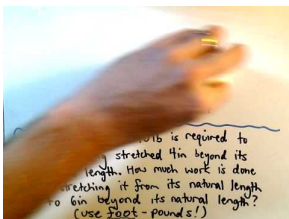 lb is required to
stretched 4in beyond its
length. How much work is done
stretching it from its natural length
to 6in beyond its natural length?
(use foot-pounds!)